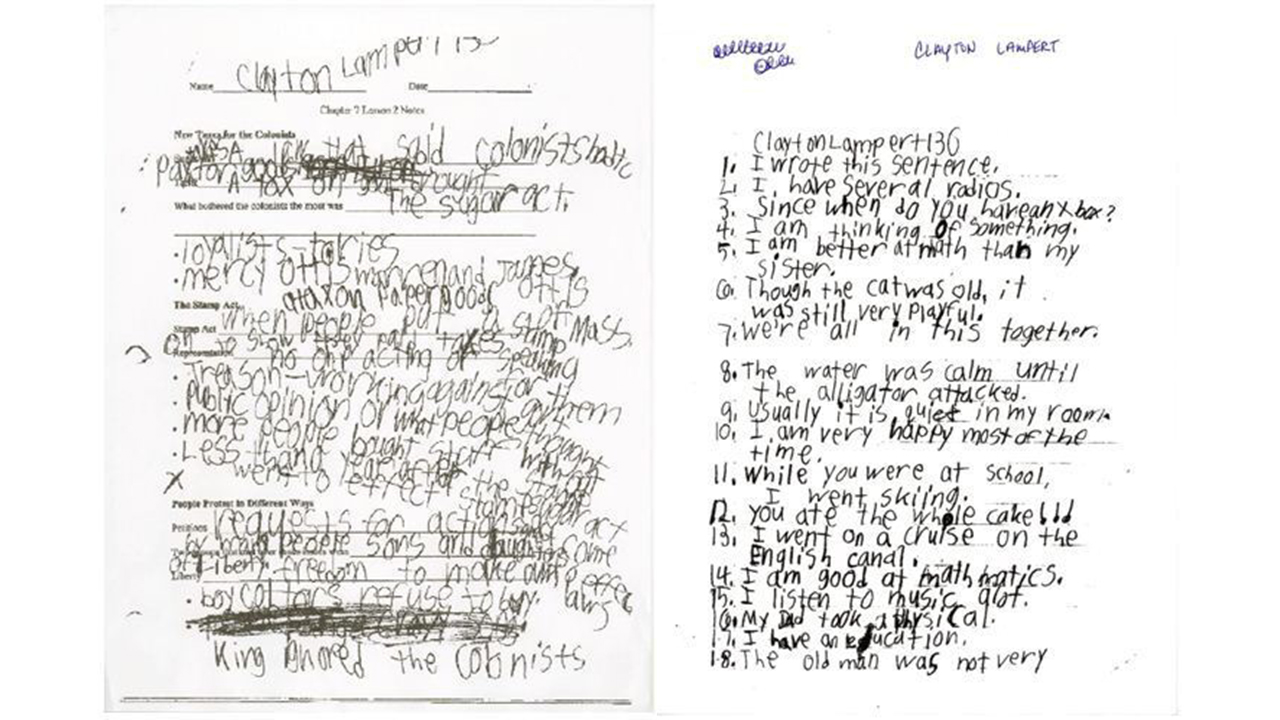 Clayton Lampert 13
Name
Date
Chapter 7 Lesson 2 Notes
New Taxes for the Colonists
A law that said colonists had to
pay for goods
A tax on goods brought
What bothered the colonists the most was The sugar act.
• loyalists - tories
• mercy ottis warren and James ottis
a tax on paper goods
The Stamp Act
Stamp Act When people put a stamp Mass.
on to show they paid taxes
Representation no one acting or speaking for them
• Treason - working against
• public opinion or what people thought
• more people bought stuff without
• Less than a year after the stamp act
went to effect
People Protest in Different Ways
Petitions requests for action signed
by many people sons and daughters
of Liberty
Liberty freedom to make own laws
• boycott refuse to buy.
King ignored the Colonists
CLAYTON LAMPERT
Clayton Lampert 136
1. I wrote this sentence.
2. I have several radios.
3. Since when do you have an xbox?
4. I am thinking of something.
5. I am better at math than my
sister.
6. Though the cat was old, it
was still very playful.
7. We're all in this together.
8. The water was calm until
the alligator attacked.
9. Usually it is quiet in my room.
10. I am very happy most of the
time.
11. While you were at school,
I went skiing.
12. you ate the whole cake!!!
13. I went on a cruise on the
English canal.
14. I am good at mathmatics.
15. I listen to music alot.
16. My Dad took a physical.
17. I have an education.
18. The old man was not very